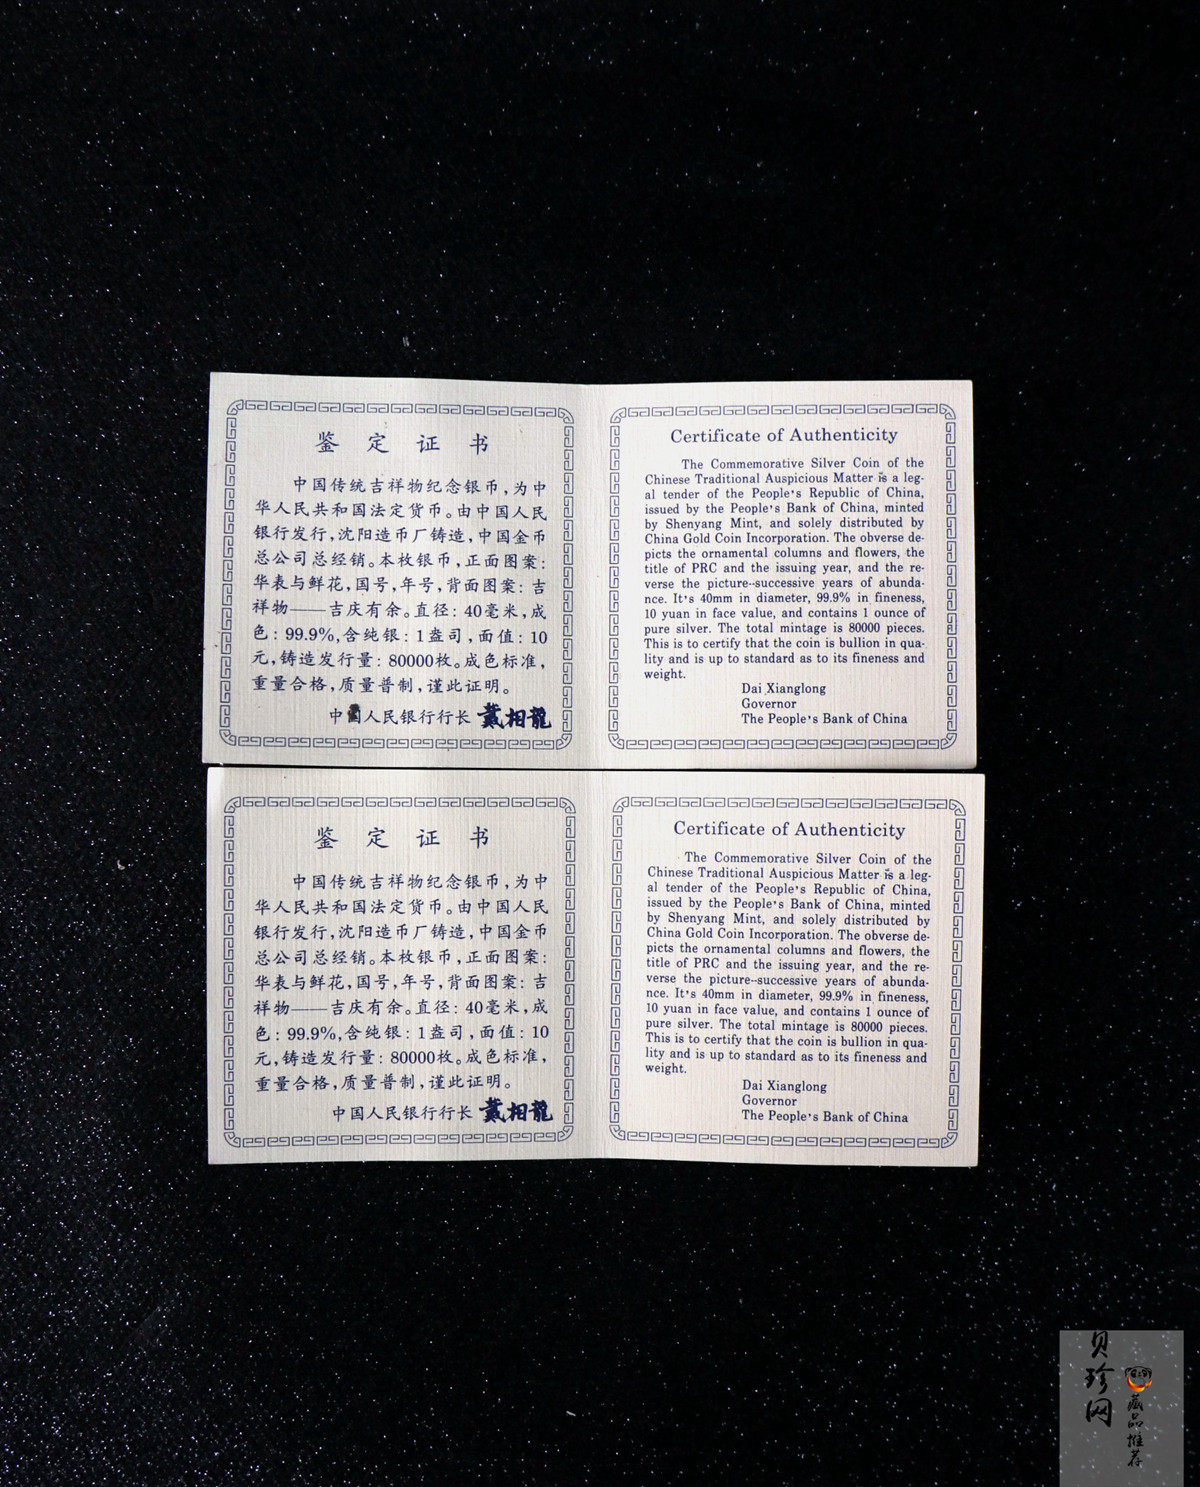 鉴定证书
中国传统吉祥物纪念银币，为中
华人民共和国法定货币。由中国人民
银行发行，沈阳造币厂铸造，中国金币
总公司总经销。本枚银币，正面图案：
华表与鲜花，国号，年号，背面图案：吉
祥物——吉庆有余。直径：40毫米，成
色：99.9%，含纯银：1盎司，面值：10
元，铸造发行量：80000枚。成色标准，
重量合格，质量普制，谨此证明。
中国人民银行行长 戴相龍
Certificate of Authenticity
The Commemorative Silver Coin of the
Chinese Traditional Auspicious Matter is a leg-
al tender of the People's Republic of China,
issued by the People's Bank of China, minted
by Shenyang Mint, and solely distributed by
China Gold Coin Incorporation. The obverse de-
picts the ornamental columns and flowers, the
title of PRC and the issuing year, and the re-
verse the picture--successive years of abunda-
nce. It's 40mm in diameter, 99.9% in fineness,
10 yuan in face value, and contains 1 ounce of
pure silver. The total mintage is 80000 pieces.
This is to certify that the coin is bullion in qua-
lity and is up to standard as to its fineness and
weight.
Dai Xianglong
Governor
The People's Bank of China
鉴定证书
中国传统吉祥物纪念银币，为中
华人民共和国法定货币。由中国人民
银行发行，沈阳造币厂铸造，中国金币
总公司总经销。本枚银币，正面图案：
华表与鲜花，国号，年号，背面图案：吉
祥物——吉庆有余。直径：40毫米，成
色：99.9%，含纯银：1盎司，面值：10
元，铸造发行量：80000枚。成色标准，
重量合格，质量普制，谨此证明。
中国人民银行行长 戴相龍
Certificate of Authenticity
The Commemorative Silver Coin of the
Chinese Traditional Auspicious Matter is a leg-
al tender of the People's Republic of China,
issued by the People's Bank of China, minted
by Shenyang Mint, and solely distributed by
China Gold Coin Incorporation. The obverse de-
picts the ornamental columns and flowers, the
title of PRC and the issuing year, and the re-
verse the picture--successive years of abunda-
nce. It's 40mm in diameter, 99.9% in fineness,
10 yuan in face value, and contains 1 ounce of
pure silver. The total mintage is 80000 pieces.
This is to certify that the coin is bullion in qua-
lity and is up to standard as to its fineness and
weight.
Dai Xianglong
Governor
The People's Bank of China
贝珍网
藏品推荐